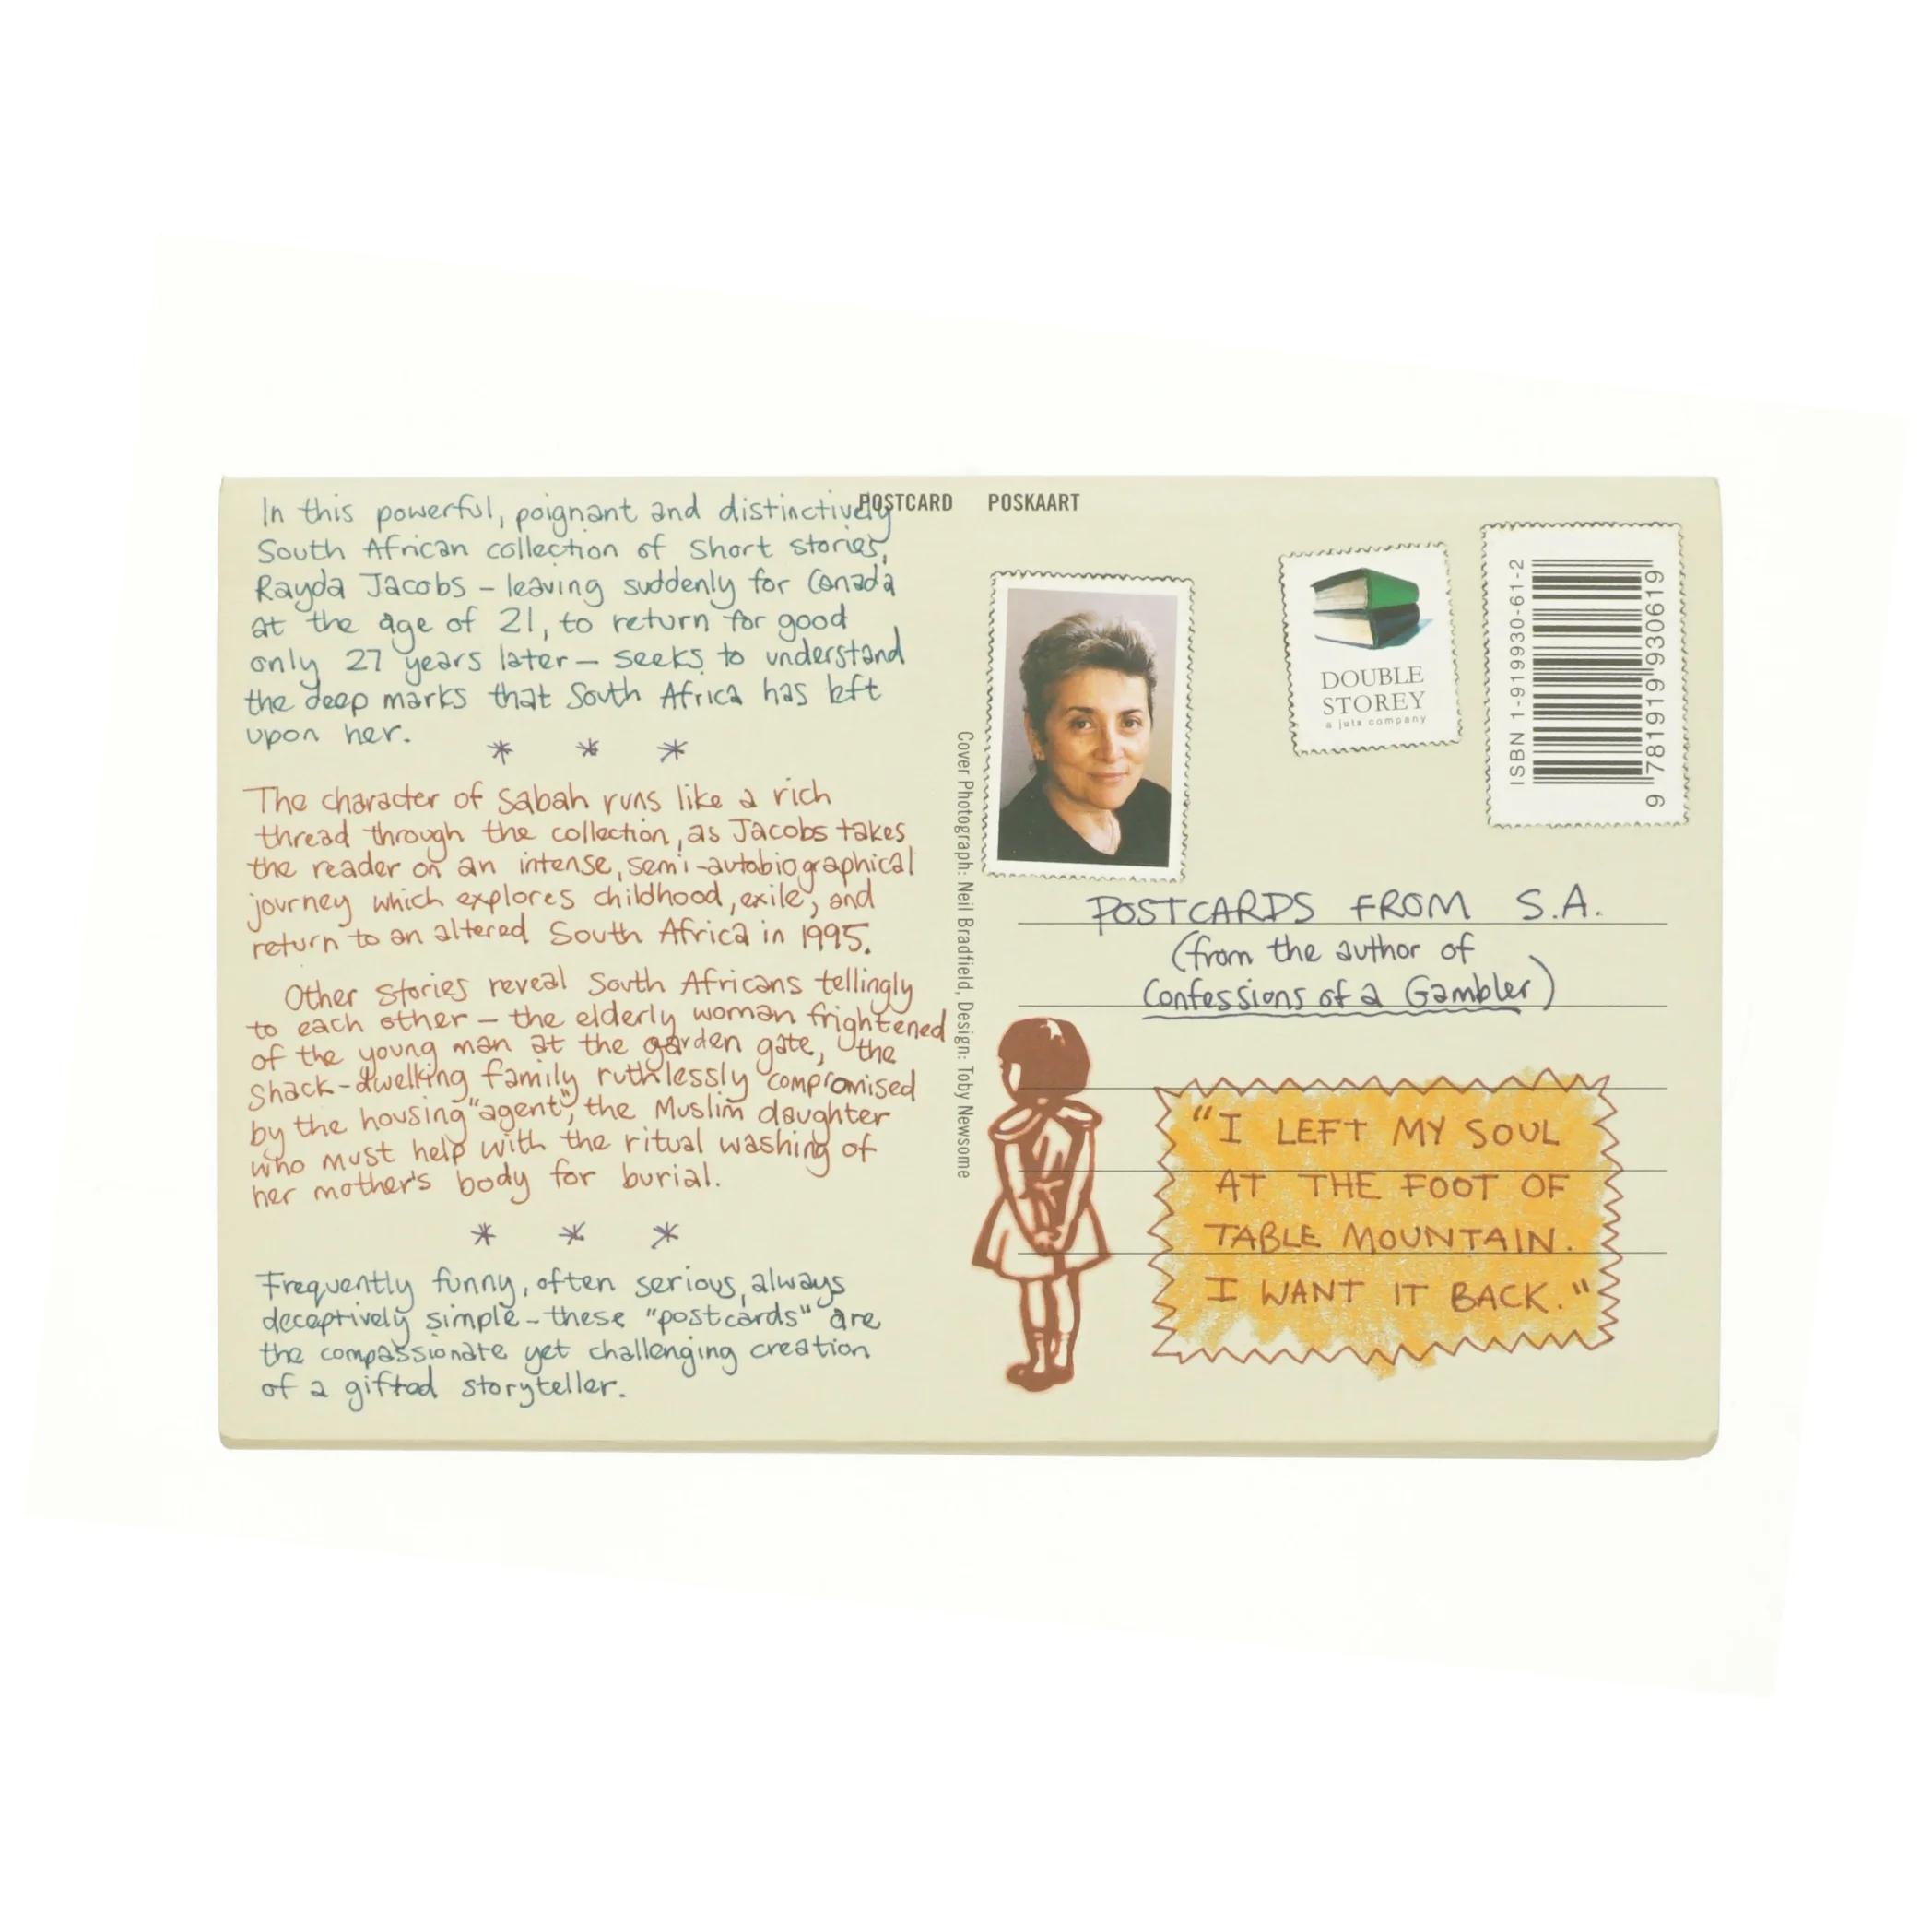 In this powerful, poignant and distinctively
South African collection of short stories,
Rayda Jacobs – leaving suddenly for Canada
at the age of 21, to return for good
only 27 years later – seeks to understand
the deep marks that South Africa has left
upon her.
* * *
The character of Sabah runs like a rich
thread through the collection, as Jacobs takes
the reader on an intense, semi-autobiographical
journey which explores childhood, exile, and
return to an altered South Africa in 1995.
Other stories reveal South Africans tellingly
to each other – the elderly woman frightened
of the young man at the garden gate, the
shack-dwelking family ruthlessly compromised
by the housing "agent", the Muslim daughter
who must help with the ritual washing of
her mother's body for burial.
* * *
Frequently funny, often serious, always
deceptively simple – these "postcards" are
the compassionate yet challenging creation
of a gifted storyteller.
POSTCARD POSKAART
Cover Photograph: Neil Bradfield, Design: Toby Newsome
DOUBLE
STOREY
a juta company
ISBN 1-919930-61-2
9 781919 930619
POSTCARDS FROM S.A.
(from the author of
Confessions of a Gambler)
"I LEFT MY SOUL
AT THE FOOT OF
TABLE MOUNTAIN.
I WANT IT BACK."